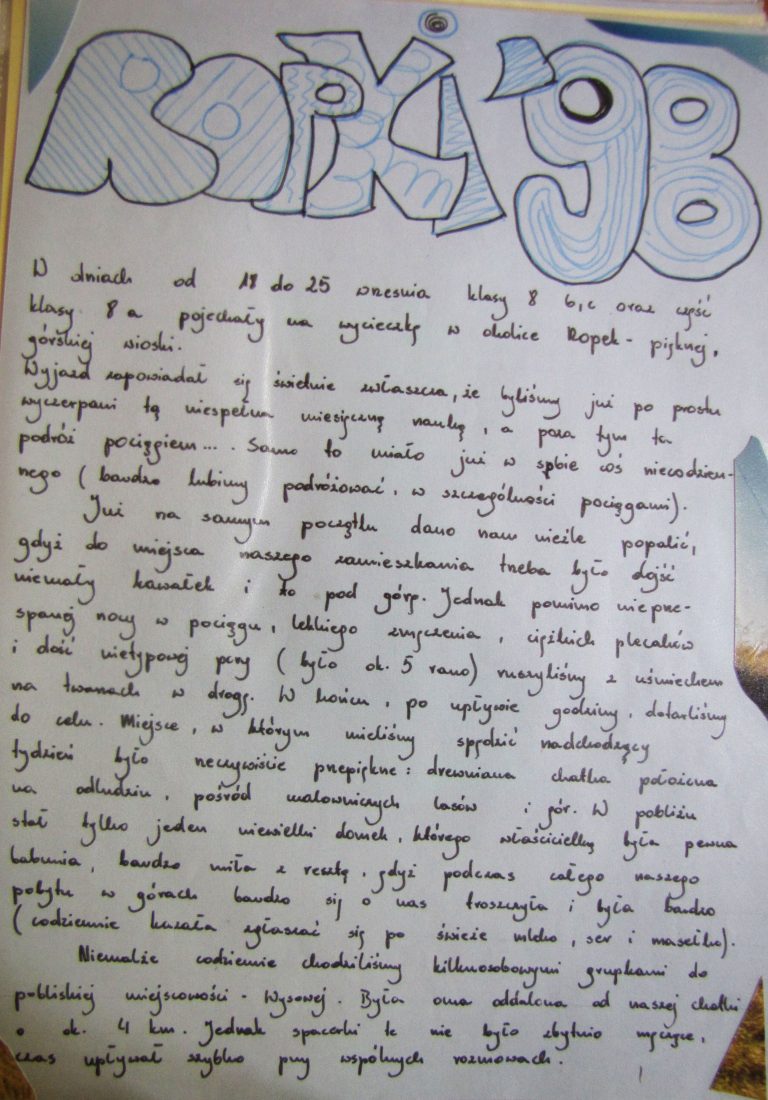 ROPKI '98
W dniach od 18 do 25 wrzesnia klasy 8 b, c oraz część
klasy 8 a pojechały na wycieczkę w okolice Ropek - pięknej,
górskiej wioski.
Wyjazd zapowiadał się świetnie zwłaszcza, że byliśmy już po prostu
wyczerpani tą niespełna miesięczną nauką, a poza tym ta
podróż pociągiem.... Samo to miało już w sobie coś niecodzien-
nego (bardzo lubimy podróżować, w szczególności pociągami).
Już na samym początku dano nam nieźle popalić,
gdyż do miejsca naszego zamieszkania trzeba było dojść
niemały kawałek i to pod górę. Jednak pomimo nieprze-
spanej nocy w pociągu, lekkiego zmęczenia, ciężkich plecaków
i dość nietypowej pory (było ok. 5 rano) ruszyliśmy z uśmiechem
na twarzach w drogę. W końcu, po upływie godziny, dotarliśmy
do celu. Miejsce, w którym mieliśmy spędzić nadchodzący
tydzień było rzeczywiście przepiękne: drewniana chatka położona
na odludziu, pośród malowniczych lasów i gór. W pobliżu
stał tylko jeden niewielki domek, którego właścicielką była pewna
babunia, bardzo miła z resztą, gdyż podczas całego naszego
pobytu w górach bardzo się o nas troszczyła i była bardzo
(codziennie kazała zgłaszać się po świeże mleko, ser i masełko).
Niemalże codziennie chodziliśmy kilkuosobowymi grupkami do
pobliskiej miejscowości - Wysowej. Była ona oddalona od naszej chatki
o ok. 4 km. Jednak spacerki te nie było zbytnio męczące,
czas upływał szybko przy wspólnych rozmowach.